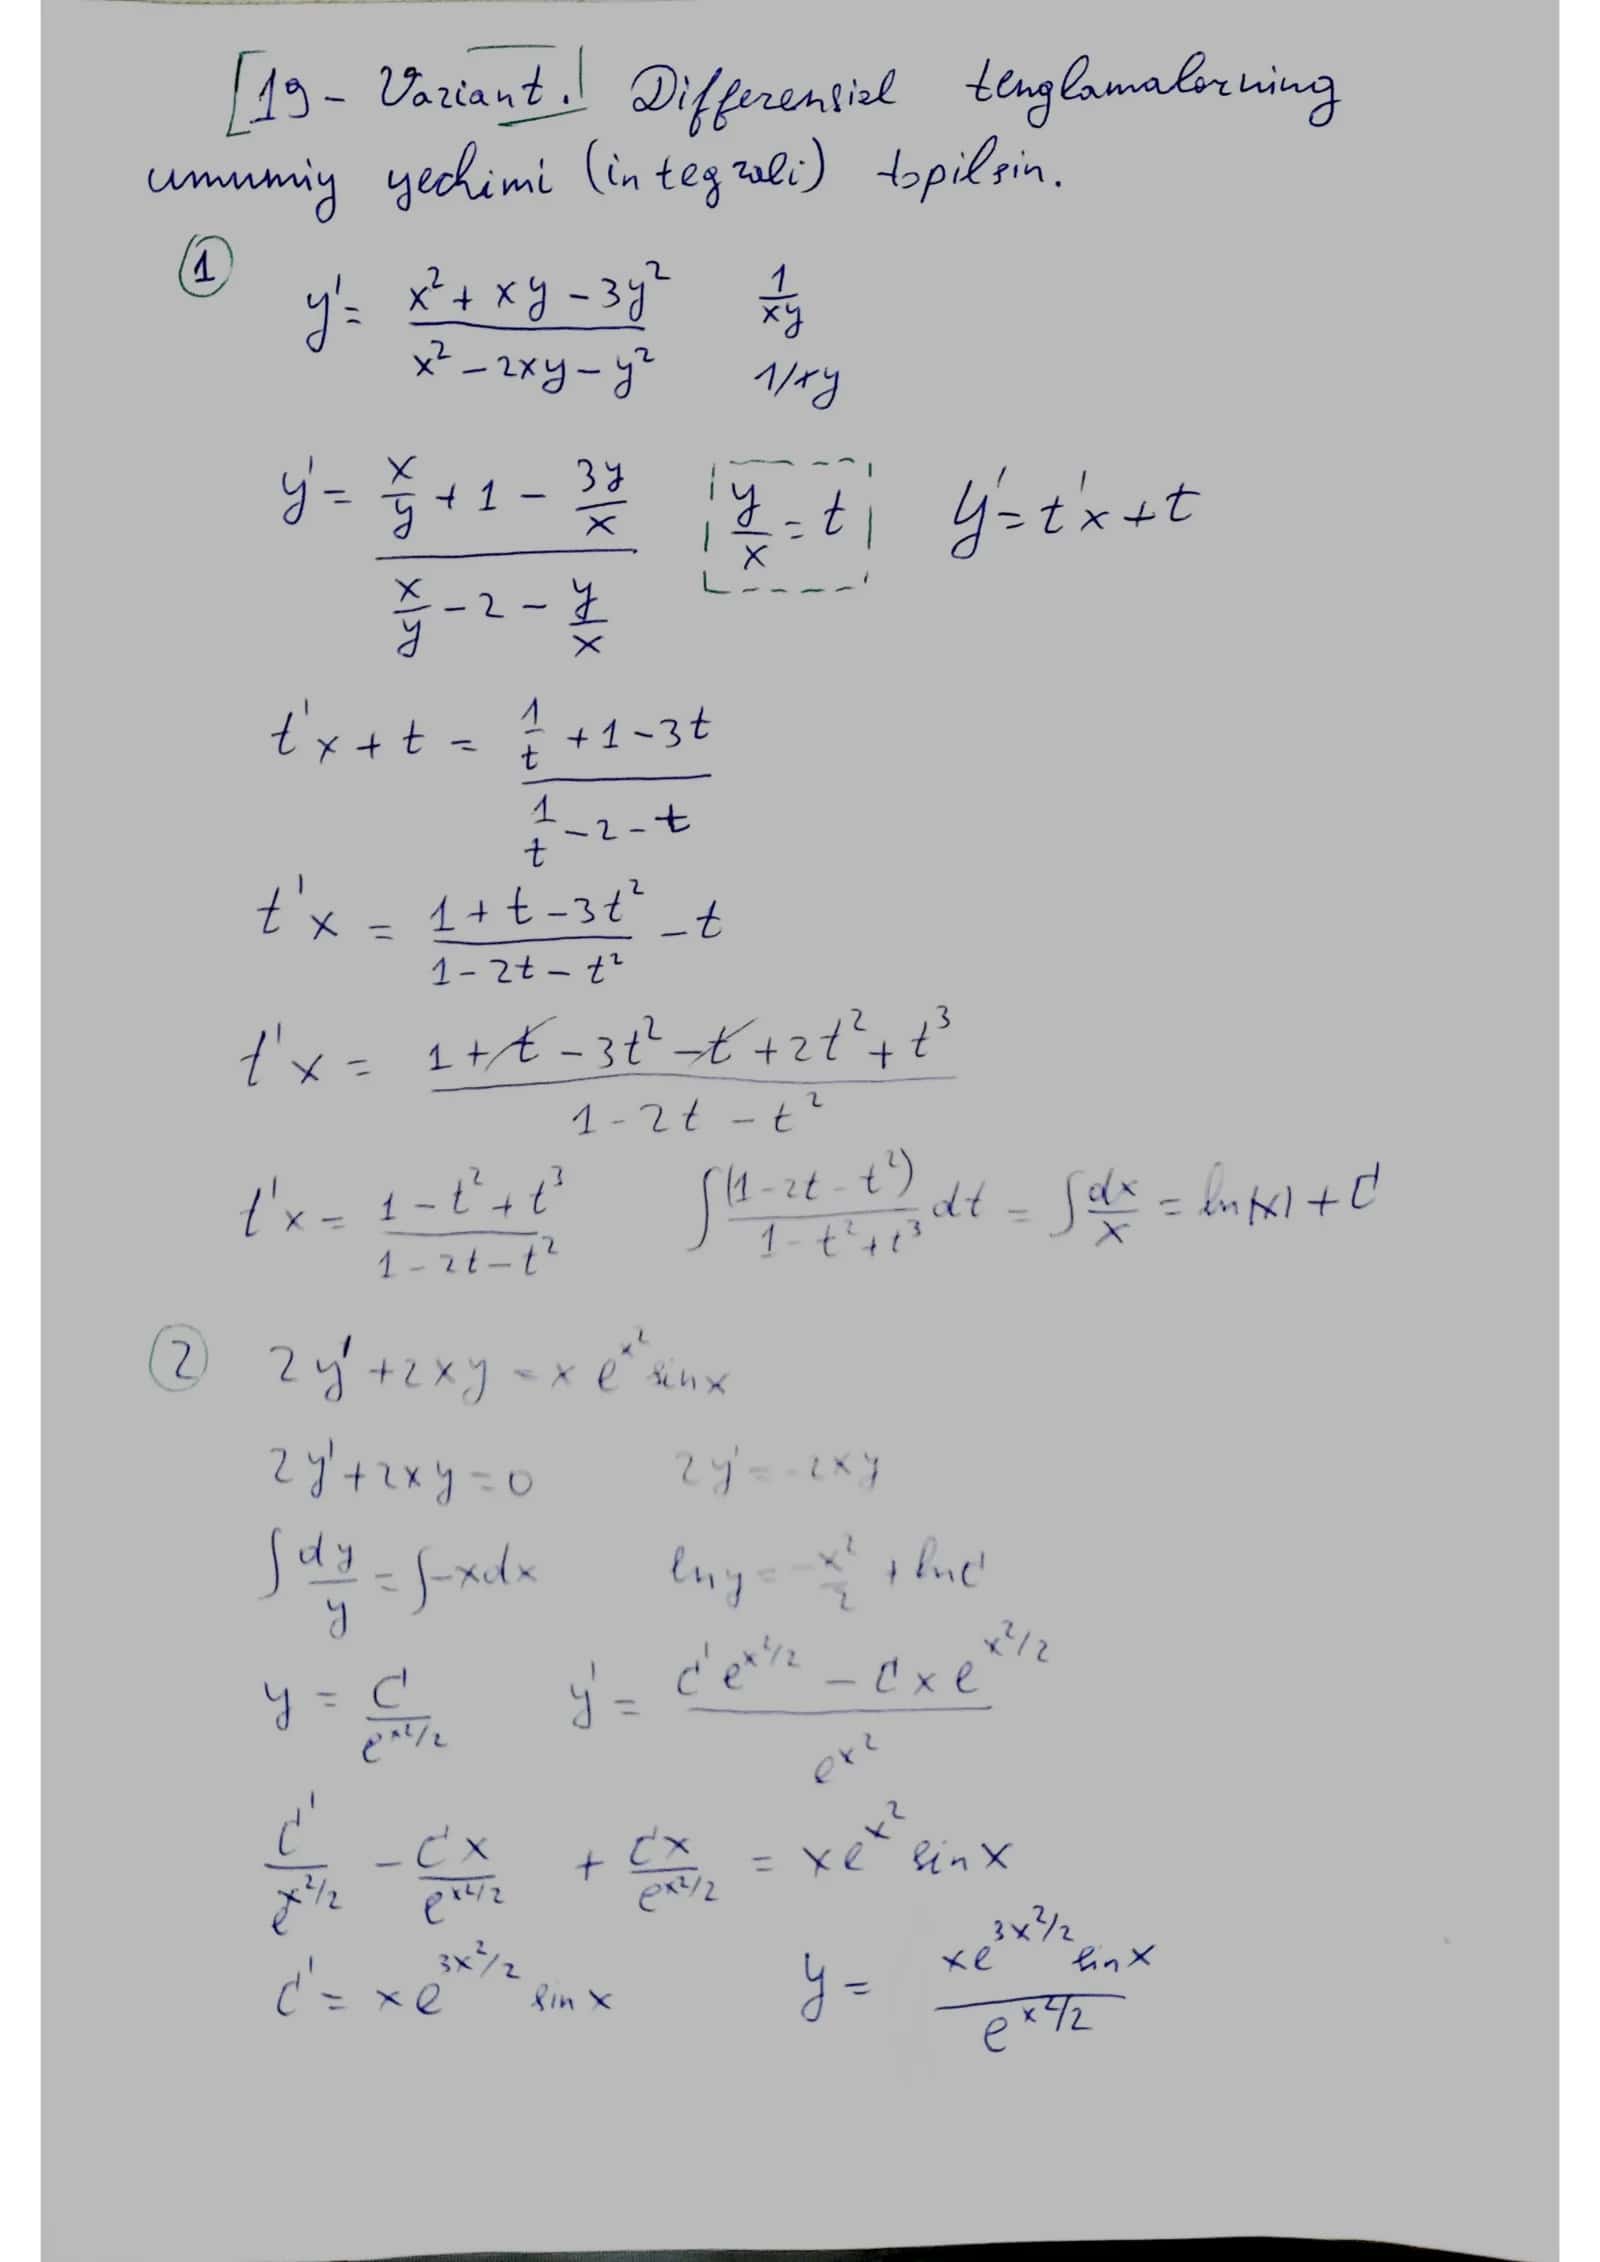 19-Variant. Differensial tenglamalarning
umumiy yechimi (integrali) topilsin.
① y' = (x² + xy - 3y²)/(x² - 2xy - y²) 1/xy
1/xy
y' = (x/y + 1 - 3y/x)/(x/y - 2 - y/x) y/x = t y' = t'x + t
t'x + t = (1/t + 1 - 3t)/(1/t - 2 - t)
t'x = (1 + t - 3t²)/(1 - 2t - t²) - t
t'x = (1 + t - 3t² - t + 2t² + t³)/(1 - 2t - t²)
t'x = (1 - t² + t³)/(1 - 2t - t²) ∫(1 - 2t - t²)/(1 - t² + t³) dt = ∫dx/x = ln(x) + C
② 2y' + 2xy = x e^(x²) sinx
2y' + 2xy = 0 2y' = -2xy
∫dy/y = ∫-xdx lny = -x²/2 + lnC
y = C/e^(x²/2) y' = (C'e^(x²/2) - Cxe^(x²/2))/e^(x²)
C'/e^(x²/2) - Cx/e^(x²/2) + Cx/e^(x²/2) = xe^(x²) sinx
C' = xe^(3x²/2) sinx y = (xe^(3x²/2) sinx)/e^(x²/2)